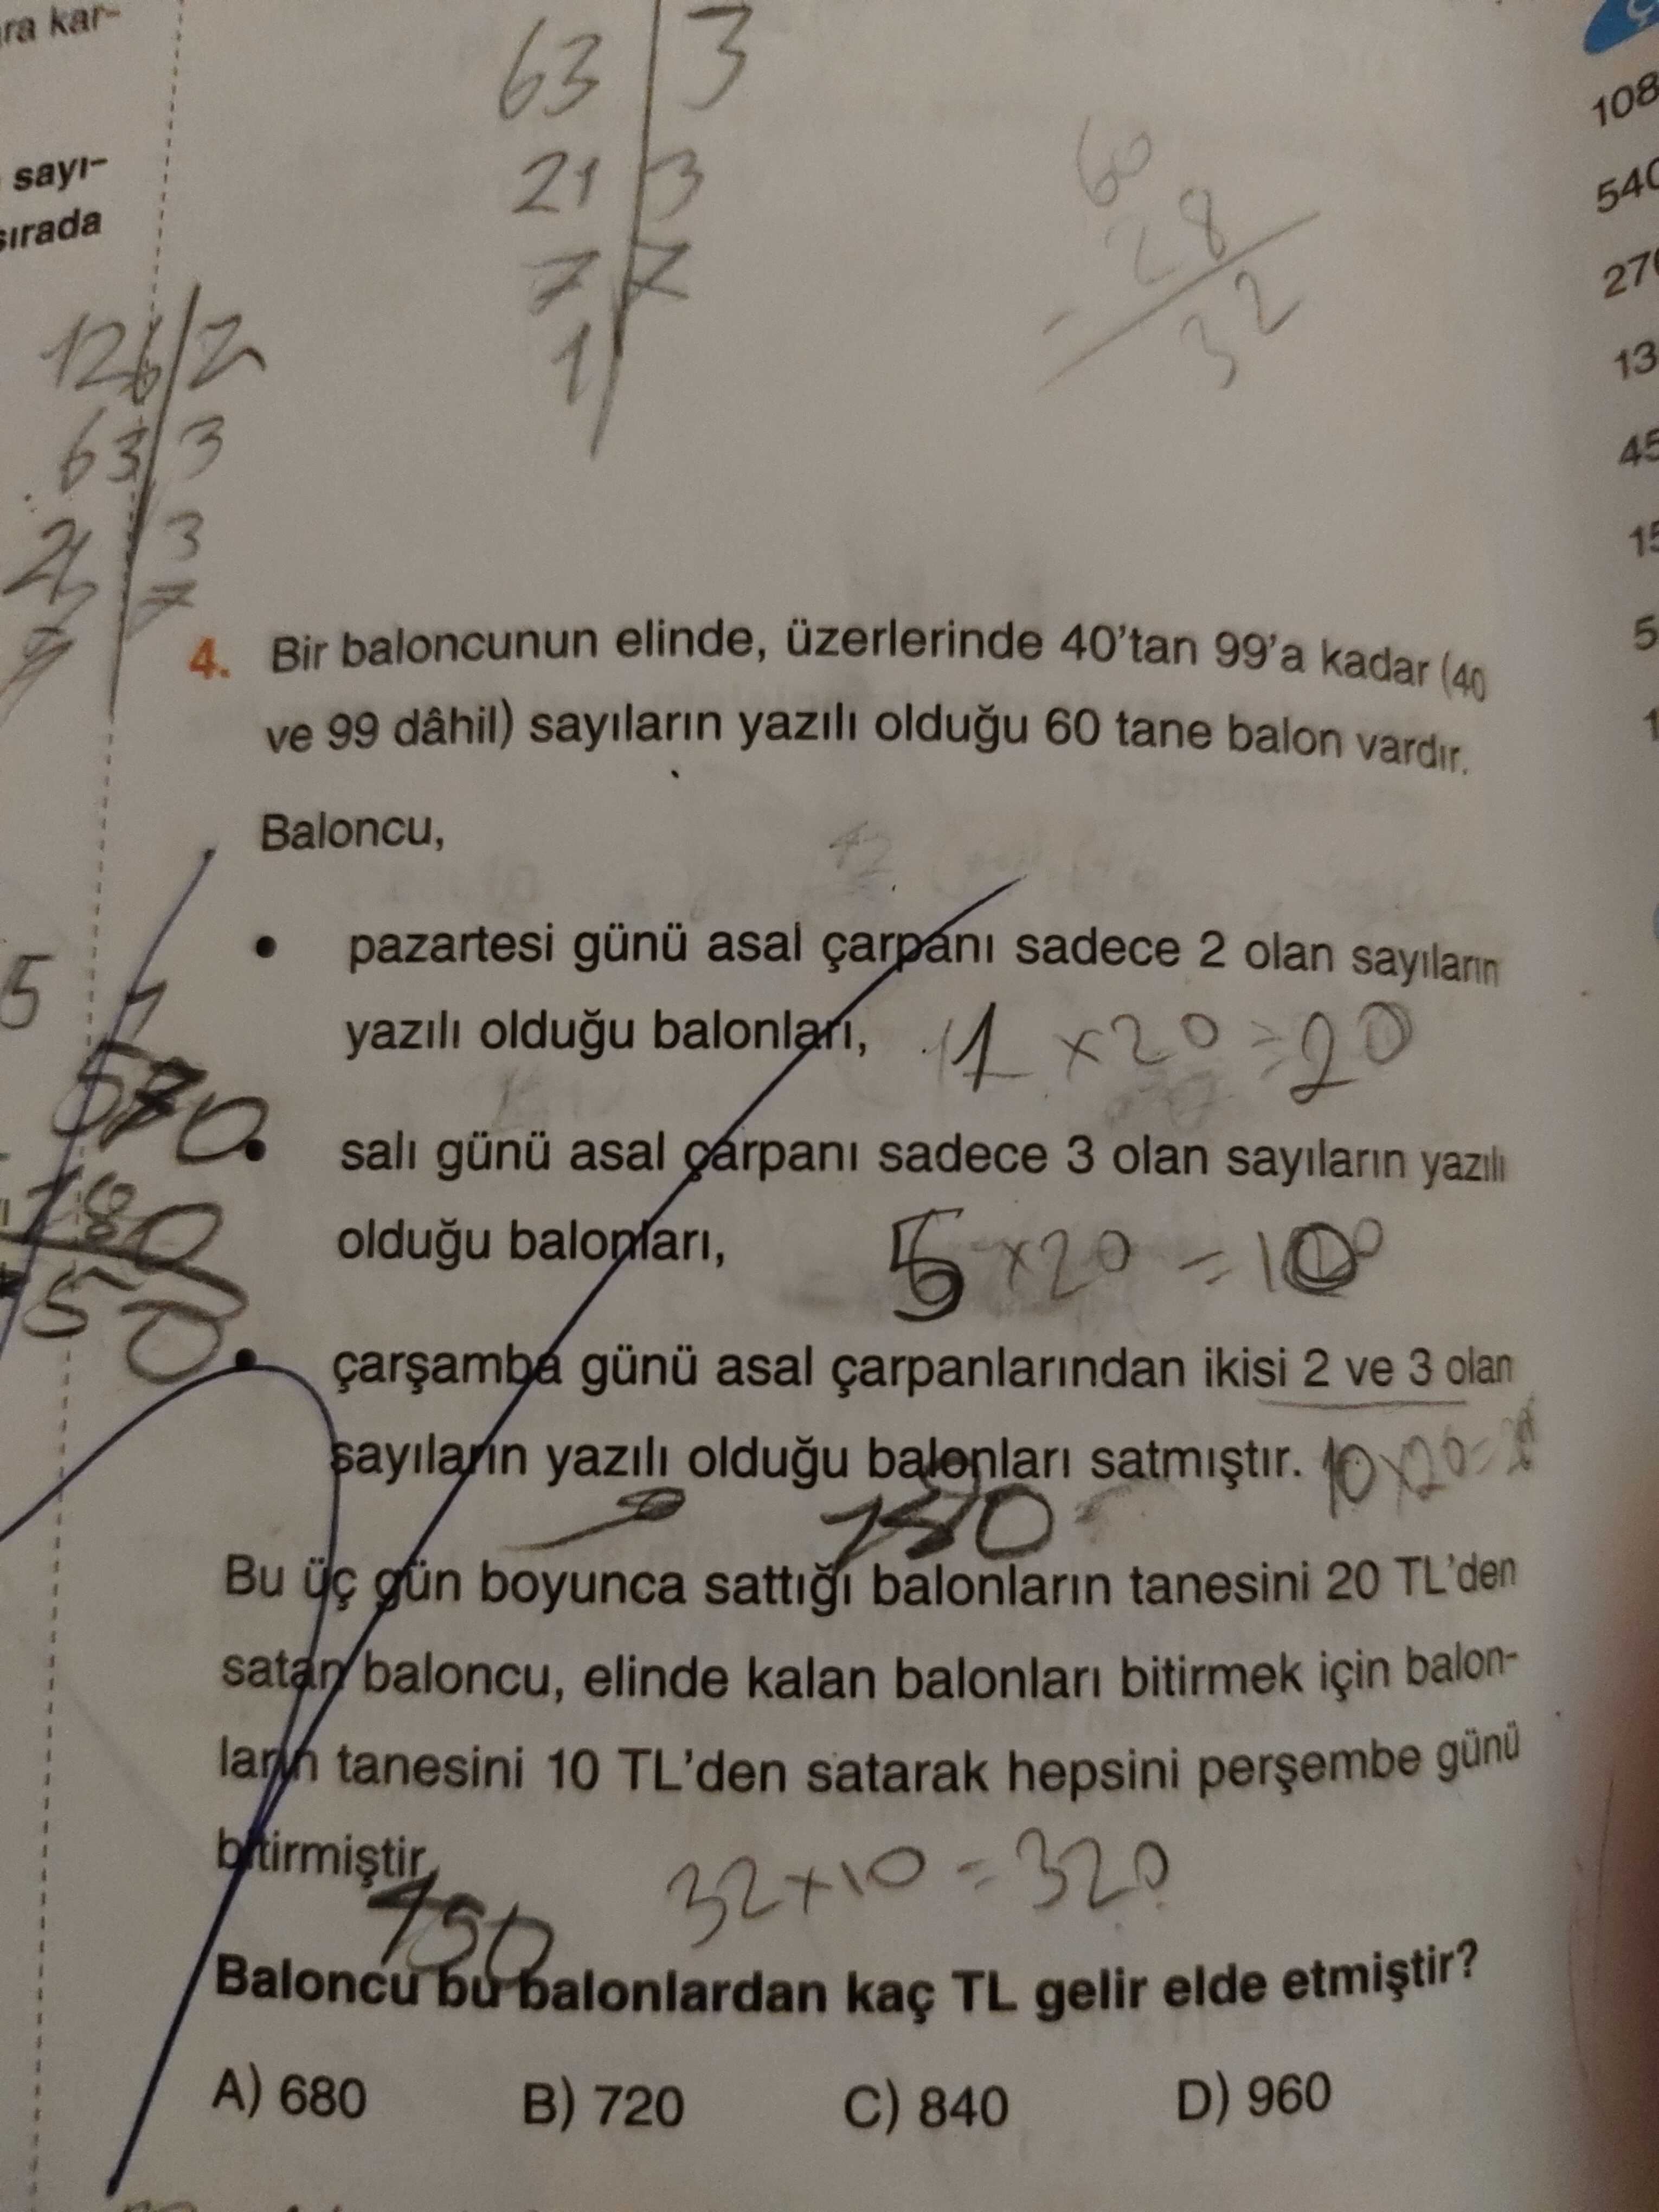 ra kar-
sayı-
sırada
63 3
21 3
7 7
1
60
28
- 32
126 2
63 3
21 3
7 7
108
540
270
13
45
15
5
1
4. Bir baloncunun elinde, üzerlerinde 40'tan 99'a kadar (40
ve 99 dâhil) sayıların yazılı olduğu 60 tane balon vardır.
Baloncu,
• pazartesi günü asal çarpanı sadece 2 olan sayıların
yazılı olduğu balonları, 1 x 20 = 20
• salı günü asal çarpanı sadece 3 olan sayıların yazılı
olduğu balonları, 5 x 20 = 100
• çarşamba günü asal çarpanlarından ikisi 2 ve 3 olan
sayıların yazılı olduğu balonları satmıştır. 10 x 20 =
Bu üç gün boyunca sattığı balonların tanesini 20 TL'den
satan baloncu, elinde kalan balonları bitirmek için balon-
ların tanesini 10 TL'den satarak hepsini perşembe günü
bitirmiştir.
32 x 10 = 320
Baloncu bu balonlardan kaç TL gelir elde etmiştir?
A) 680 B) 720 C) 840 D) 960